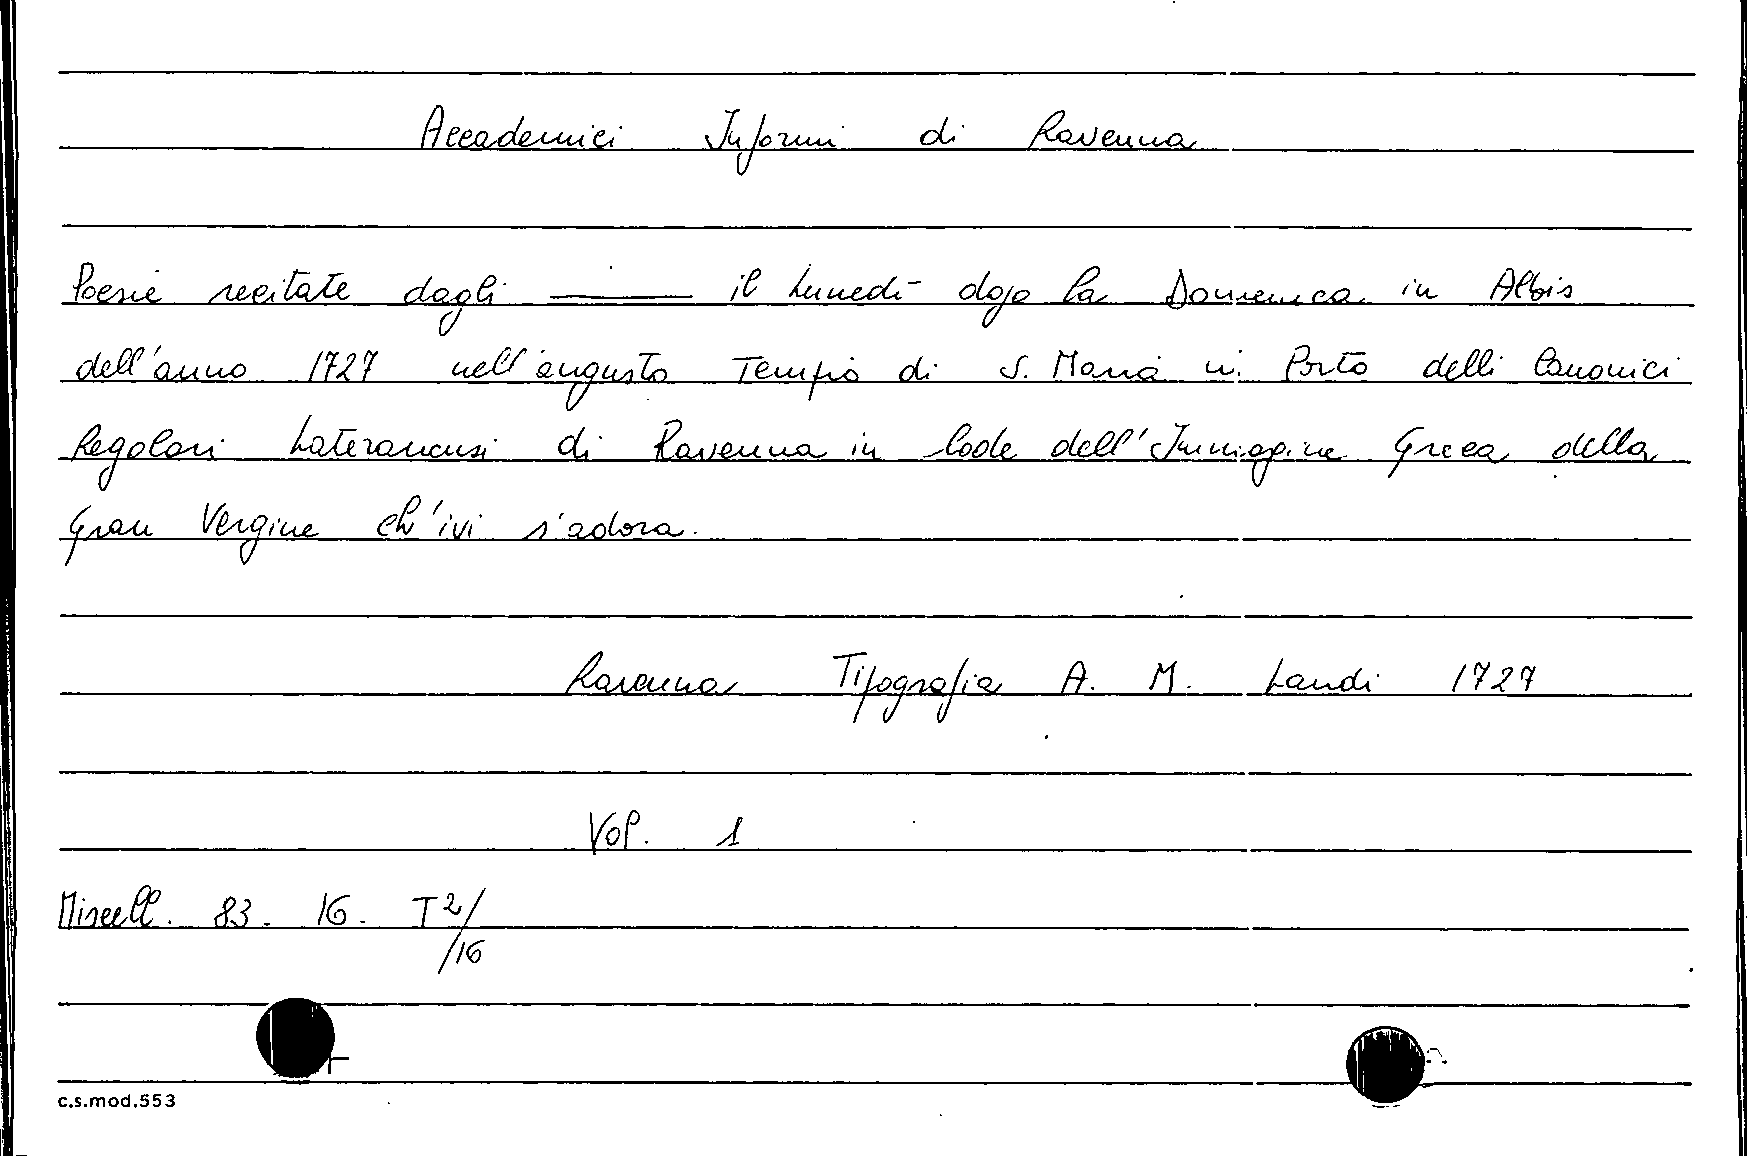 Accademici Informi di Ravenna
Poesie recitate dagli ——— il Lunedì dopo la Domenica in Albis
dell'anno 1727 nell'augusto Tempio di S. Maria in Porto delli Canonici
Regolari Lateranensi di Ravenna in lode dell'Immagine Greca della
Gran Vergine ch'ivi s'adora.
Ravenna Tipografia A. M. Landi 1727
Vol. 1
Miscell. 83. 16. T2/
/16
c.s.mod.553